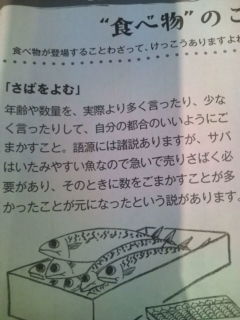 “食べ物”のこ
食べ物が登場することわざって、けっこうありますよね
「さばをよむ」
年齢や数量を、実際より多く言ったり、少な
く言ったりして、自分の都合のいいようにご
まかすこと。語源には諸説ありますが、サバ
はいたみやすい魚なので急いで売りさばく必
要があり、そのときに数をごまかすことが多
かったことが元になったという説があります。